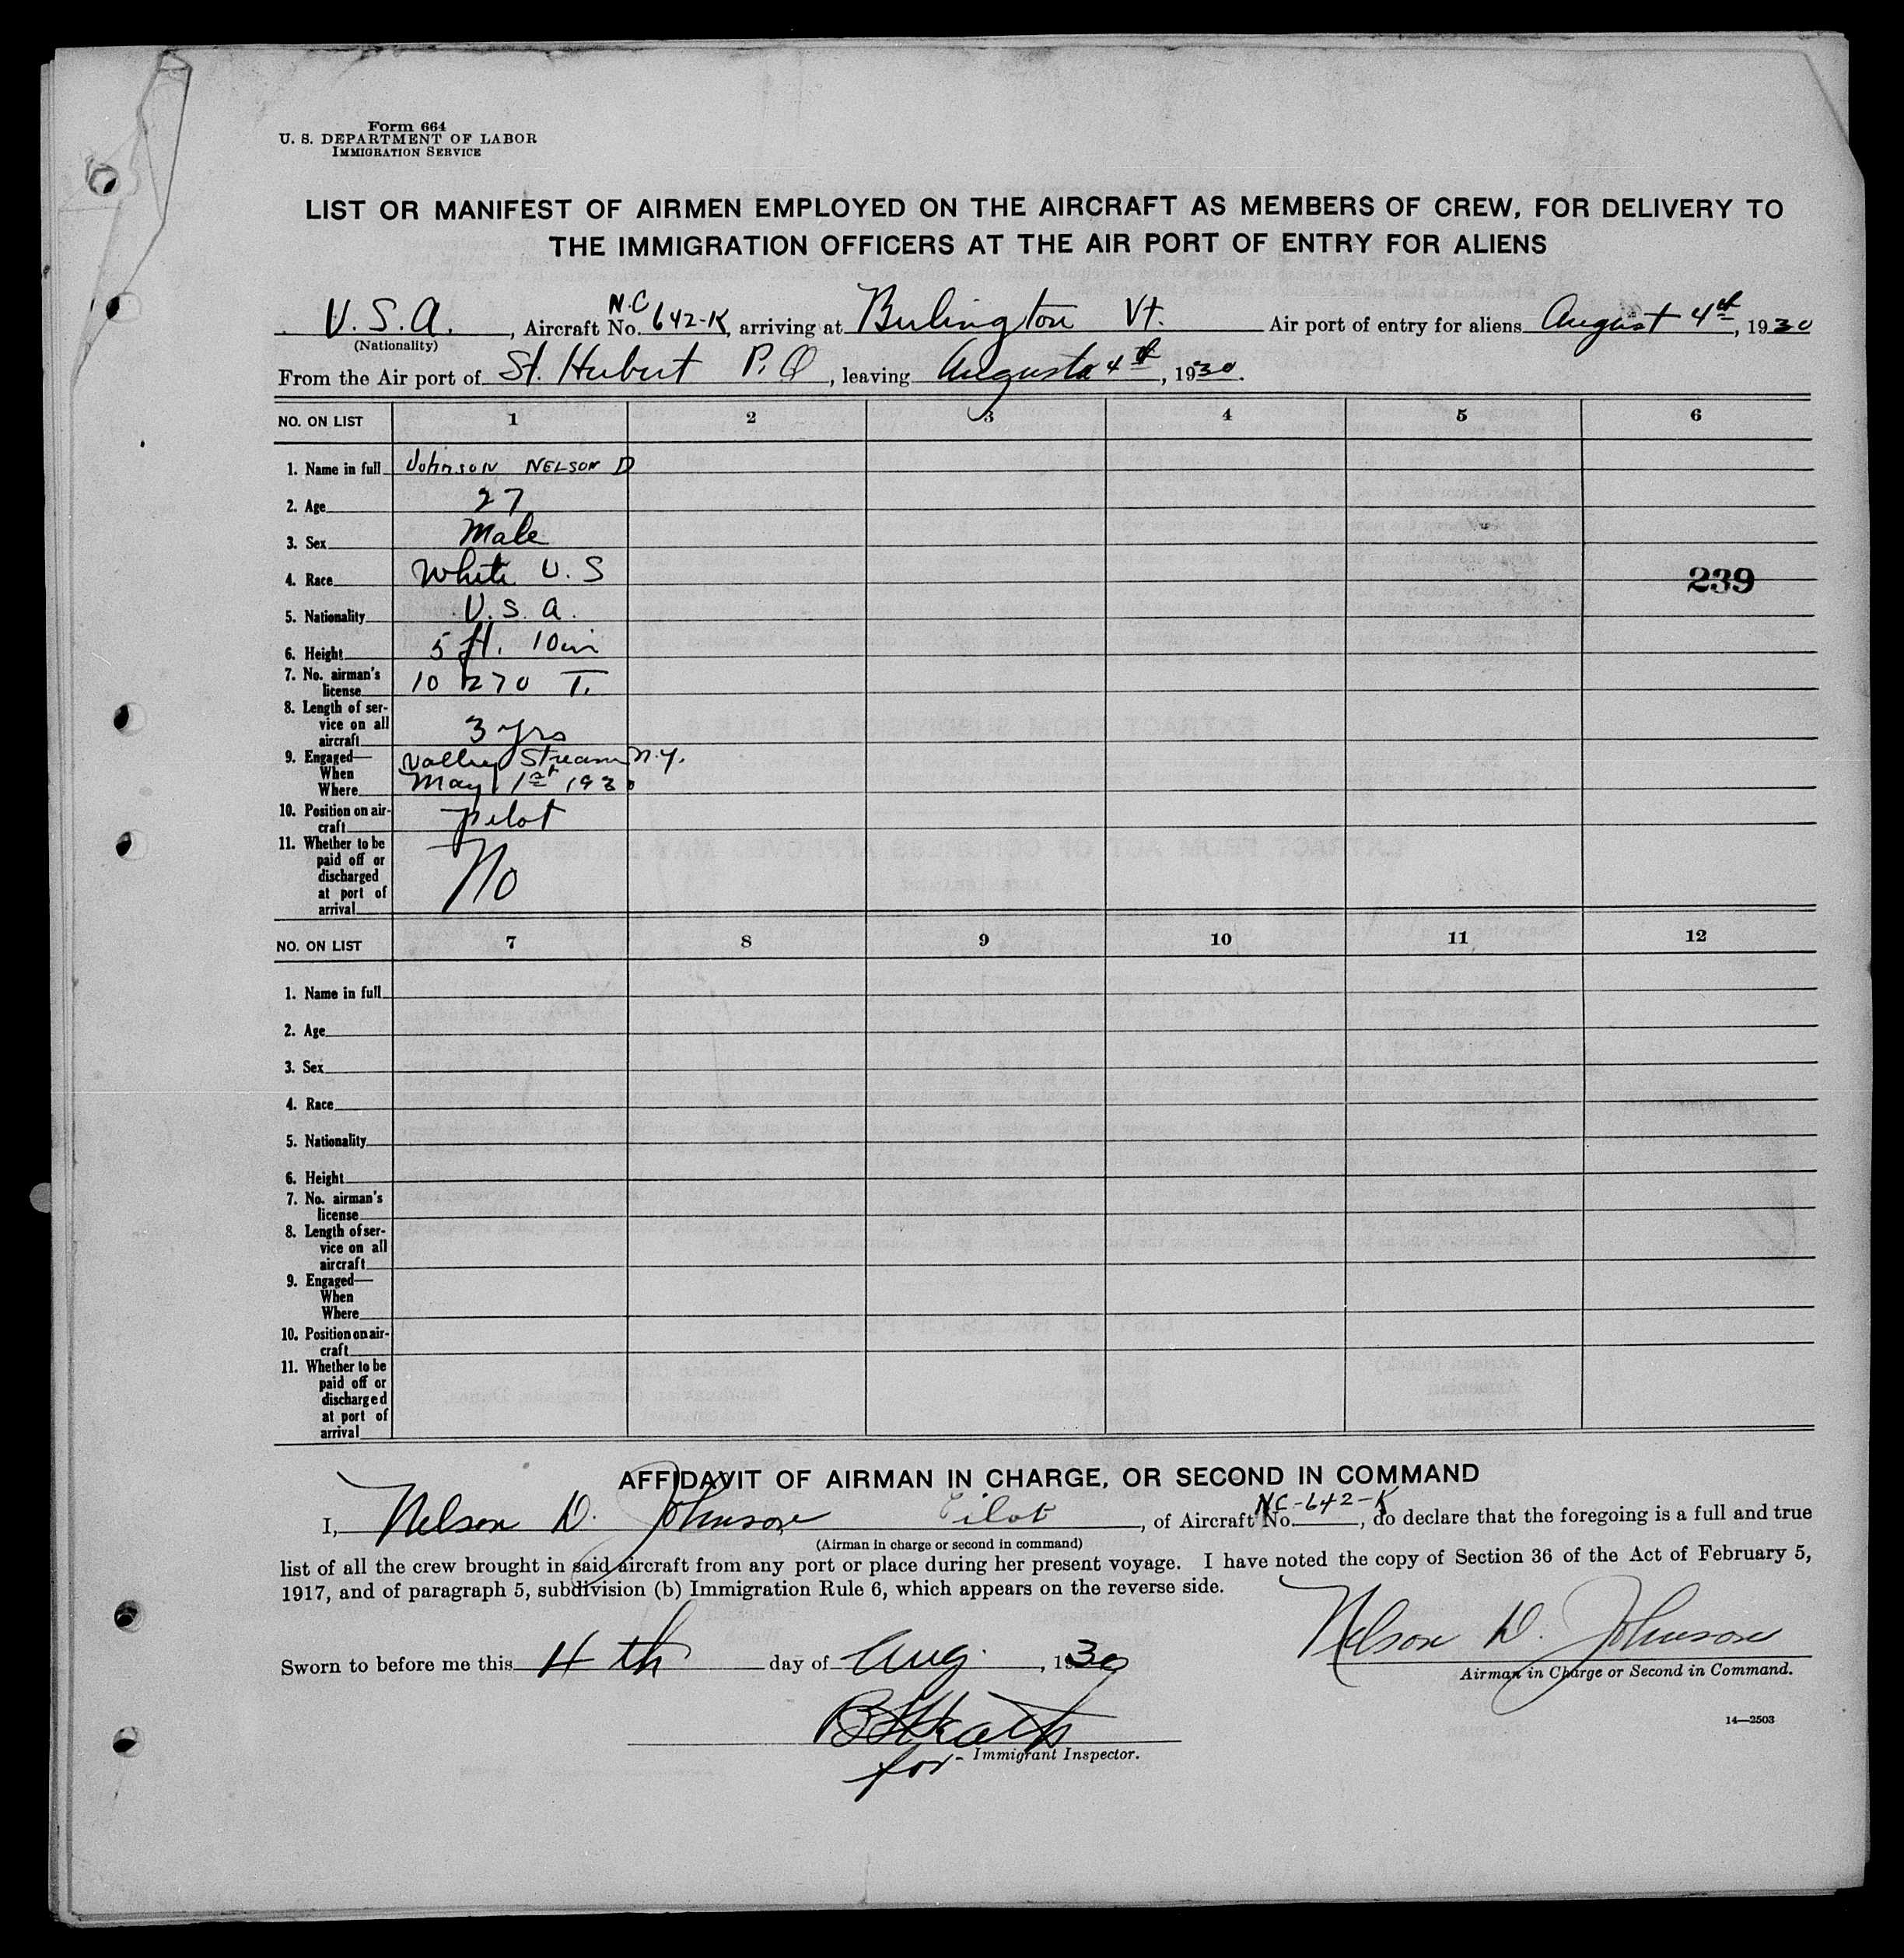 Form 664
U. S. DEPARTMENT OF LABOR
IMMIGRATION SERVICE
LIST OR MANIFEST OF AIRMEN EMPLOYED ON THE AIRCRAFT AS MEMBERS OF CREW, FOR DELIVERY TO
THE IMMIGRATION OFFICERS AT THE AIR PORT OF ENTRY FOR ALIENS
U.S.A., Aircraft No. N.C 642-K, arriving at Burlington Vt. Air port of entry for aliens August 4th, 1930
(Nationality)
From the Air port of St. Hubert P.Q, leaving August 4th, 1930.
NO. ON LIST 1 2 3 4 5 6
1. Name in full Johnson NELSON D
2. Age 27
3. Sex Male
4. Race White U.S
239
5. Nationality U.S.A.
6. Height 5 ft. 10in
7. No. airman's
license 10270 T.
8. Length of ser-
vice on all
aircraft 3 yrs
9. Engaged— Valley Stream N.Y.
When
Where May 1st 1930
10. Position on air-
craft pilot
11. Whether to be
paid off or
discharged No
at port of
arrival
NO. ON LIST 7 8 9 10 11 12
1. Name in full
2. Age
3. Sex
4. Race
5. Nationality
6. Height
7. No. airman's
license
8. Length of ser-
vice on all
aircraft
9. Engaged—
When
Where
10. Position on air-
craft
11. Whether to be
paid off or
discharged
at port of
arrival
AFFIDAVIT OF AIRMAN IN CHARGE, OR SECOND IN COMMAND
I, Nelson D. Johnson Pilot, of Aircraft No. NC-642-K, do declare that the foregoing is a full and true
(Airman in charge or second in command)
list of all the crew brought in said aircraft from any port or place during her present voyage. I have noted the copy of Section 36 of the Act of February 5,
1917, and of paragraph 5, subdivision (b) Immigration Rule 6, which appears on the reverse side.
Nelson D. Johnson
Sworn to before me this 4th day of Aug., 1930
Airman in Charge or Second in Command.
14—2503
for- Immigrant Inspector.